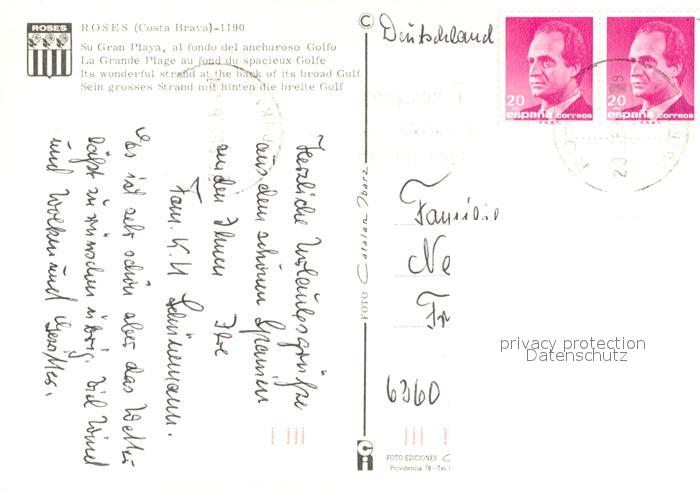 ROSES
ROSES (Costa Brava)-1190
Su Gran Playa, al fondo del anchuroso Golfo
La Grande Plage au fond du spacieux Golfe
Its wonderful strand at the back of its broad Gulf
Sein grosses Strand mit hinten die breite Golf
Herzliche Urlaubsgrüße
aus dem schönen Spanien
senden Ihnen Ihre
Fam. K.H. Schünemann.
Es ist sehr schön aber das Wetter
läßt zu wünschen übrig. Viel Wind
und Wolken und Gewitter.
©
FOTO Catalan Ibarz
FOTO EDICIONES C
Providencia 78 - Tel.
Deutschland
20 20
españa correos españa correos
23
Familie
Ne
Fr
6360
privacy protection
Datenschutz